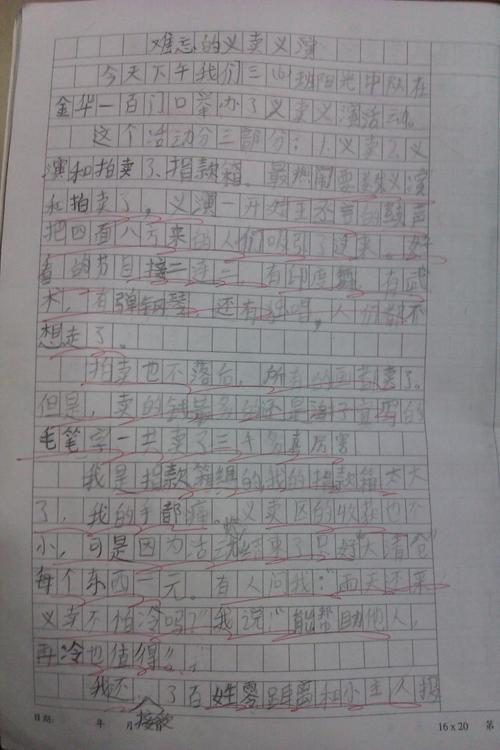 难忘的义卖义演
今天下午我们三(4)班阳光中队在
金华一百门口举办了义卖义演活动。
这个活动分三部分:1.义卖2.义
演和拍卖了、捐款箱。最热闹要数义演
和拍卖了,义演一开始主不言的鼓声
把四面八方来的人们吸引了过来。好
看的节目接二连三,有印度舞,有武
术,有弹钢琴,还有独唱,人们都不
想走了。
拍卖也不落后,所有的画卖了。
但是,卖的钱最多的还是海子宜写的
毛笔字一共卖了三千多真厉害
我是捐款箱组的我的捐款箱太大
了,我的手都痛。义卖区的收获也不
小,可是因为活动快结束了只好“大清仓”
每个东西一元。有人问我:“雨天还来
义卖不怕冷吗?”我说:“能帮助他人,
再冷也值得!”
我还接散了百姓零距离和小主人报
日期: 年 月
16×20 第